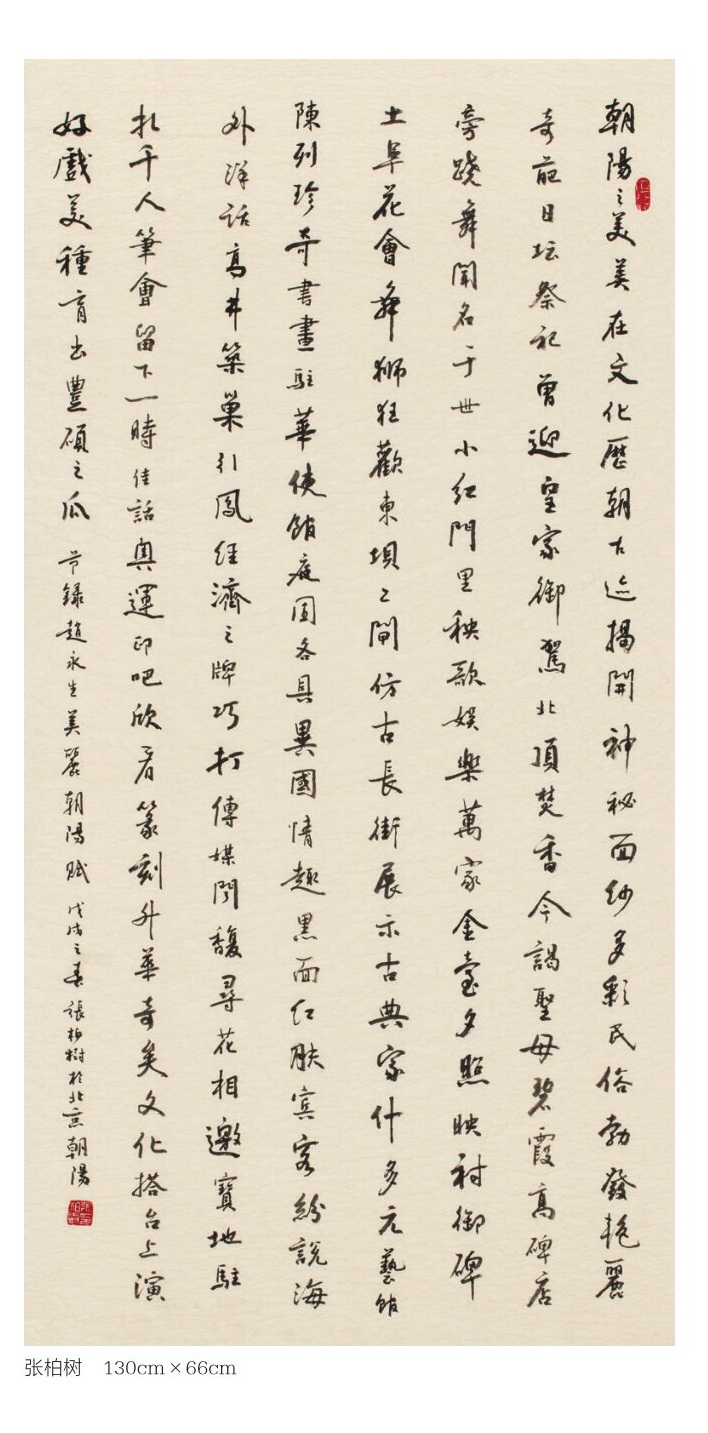 朝陽之美美在文化歷朝古迹揭開神秘面紗多彩民俗勃發艳麗
奇葩日坛祭祀曾迎皇家御駕北頂焚香今謁聖母碧霞高碑店
旁跷舞聞名于世小红門里秧歌娱樂萬家金臺夕照映衬御碑
土阜花會舞狮狂歡東坝二閘仿古長街展示古典家什多元藝館
陳列珍奇書畫駐華使館庭園各具異國情趣黑面红肤賓客紛說海
外洋話高井築巢引鳳经濟之牌巧打傳媒門馥尋花相邀寶地駐
扎千人筆會留下一時佳話奥運印吧欣看篆刻升華奇矣文化搭台上演
好戲美種育出豐碩之瓜 节録趙永生美麗朝陽賦 戊戌之春張柏樹於北京朝陽
张柏树 130cm×66cm